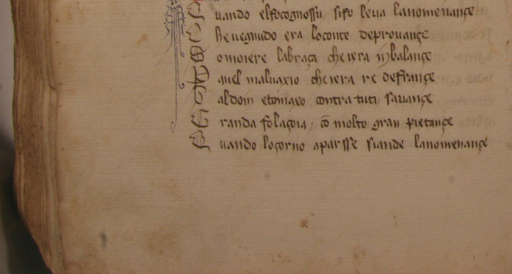 Quando elfo cognossu sifo leua la nomenançe
Che uegnudo era lo conte de prouançe
Como iere labraça che iera in balançe
quel maluaxio che iera re de françe
aldoin etomaxo contra tuti sauançe
Granda fo laçoia, cō molto gran pietançe
Quando loçorno aparsse siande lanomenançe